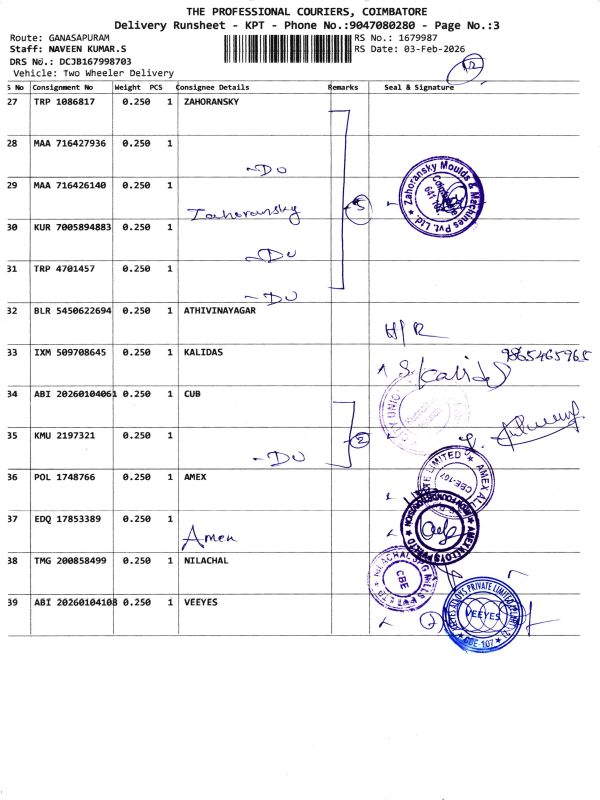 THE PROFESSIONAL COURIERS, COIMBATORE
Delivery Runsheet - KPT - Phone No.:9047080280 - Page No.:3
Route: GANASAPURAM
RS No.: 1679987
Staff: NAVEEN KUMAR.S
RS Date: 03-Feb-2026
DRS No.: DCJB167998703
Vehicle: Two Wheeler Delivery
12
S No Consignment No Weight PCS Consignee Details Remarks Seal & Signature
27 TRP 1086817 0.250 1 ZAHORANSKY
28 MAA 716427936 0.250 1
-DO
29 MAA 716426140 0.250 1
Zahoransky
5
Zahoransky Moulds & Machines Pvt. Ltd.
30 KUR 7005894883 0.250 1
-DO
31 TRP 4701457 0.250 1
-DO
32 BLR 5450622694 0.250 1 ATHIVINAYAGAR
H/R
33 IXM 509708645 0.250 1 KALIDAS
S. Kalidas
9865465965
34 ABI 20260104061 0.250 1 CUB
CITY UNION
35 KMU 2197321 0.250 1
-DO
2
36 POL 1748766 0.250 1 AMEX
CBE-107
37 EDQ 17853389 0.250 1
Amex
38 TMG 200858499 0.250 1 NILACHAL
CBE
39 ABI 20260104108 0.250 1 VEEYES
VEEYES
CBE-107